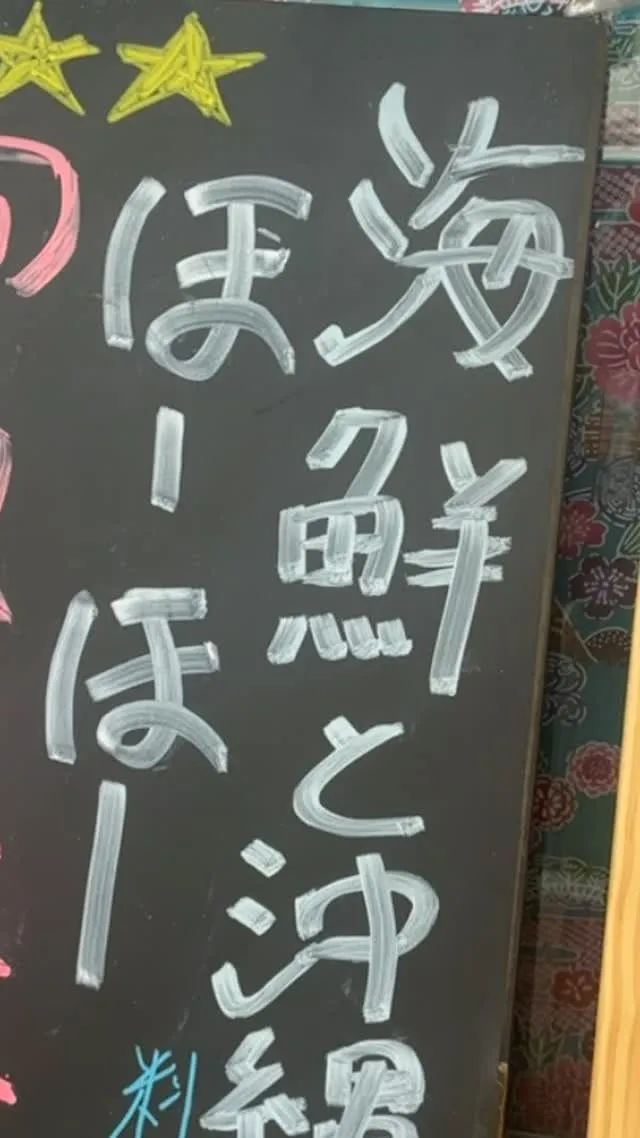 海鮮と沖縄
ほーほー
料